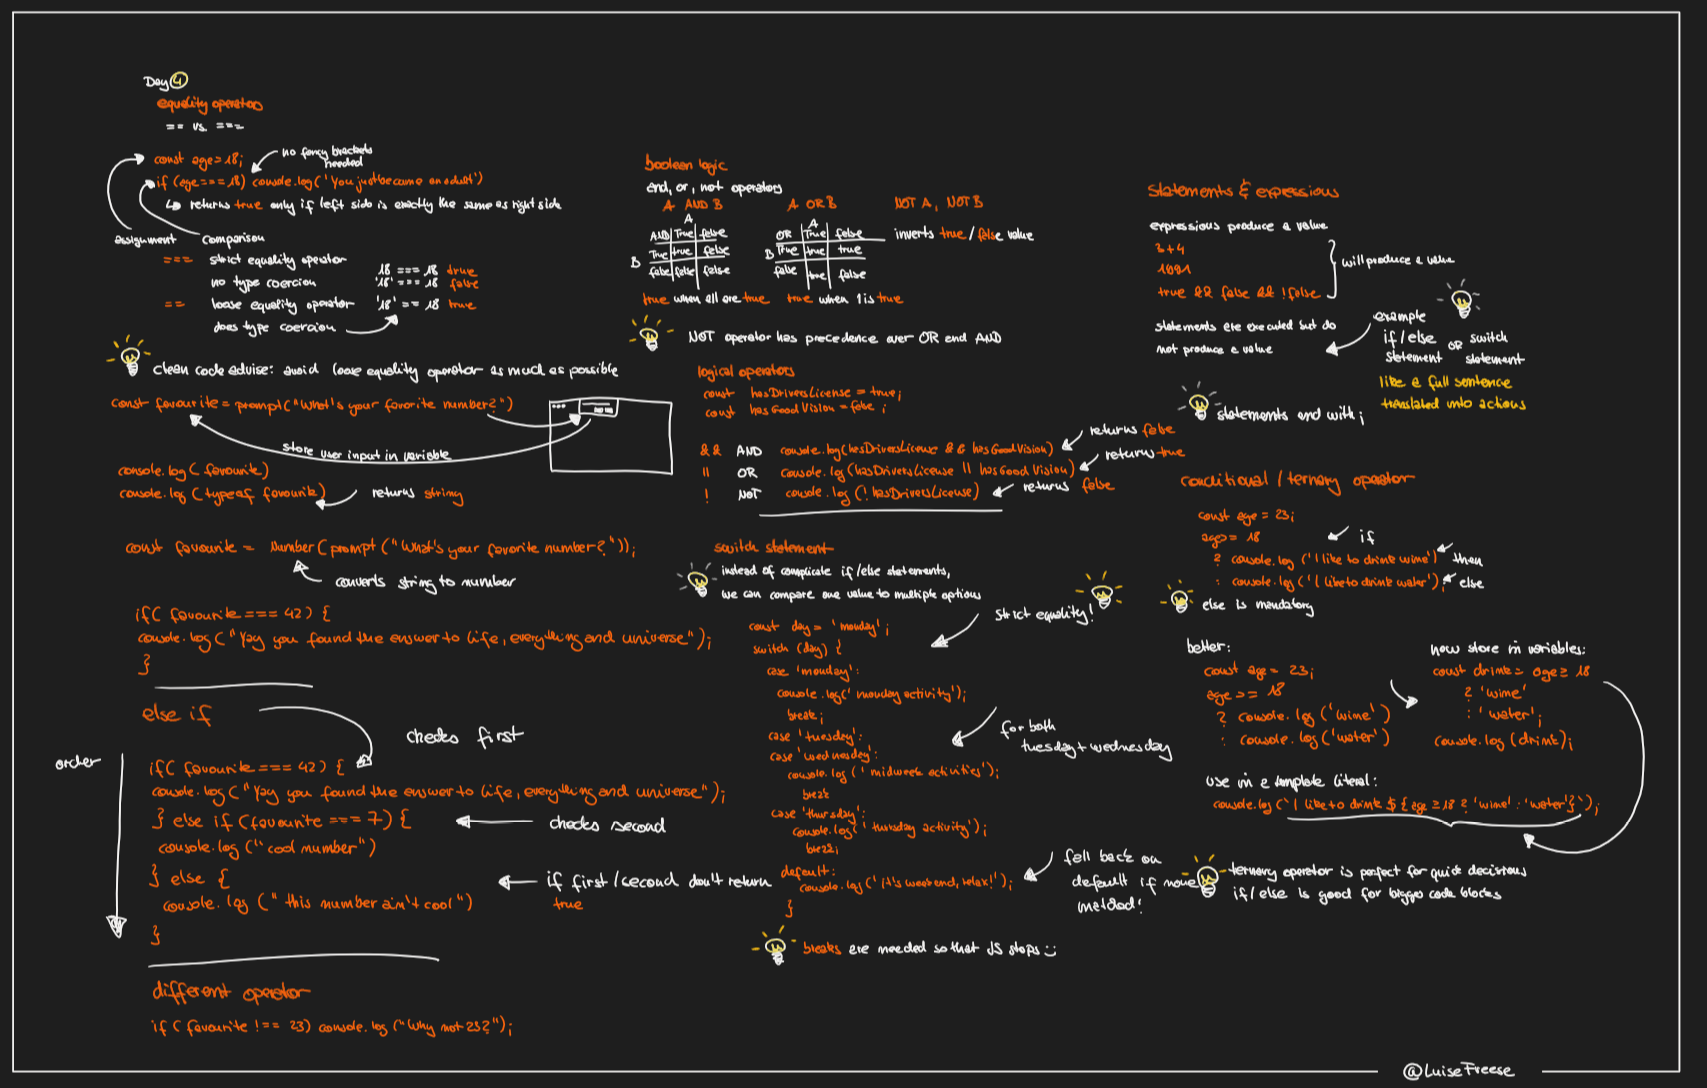 Day 4
equality operators
== vs ===
const age=18;
no fancy brackets
needed
if (age===18) console.log('You just became an adult')
↳ returns true only if left side is exactly the same as right side
assignment
comparison
=== strict equality operator
no type coercion
18 === 18 true
'18' === 18 false
== loose equality operator
'18' == 18 true
does type coercion
clean code advise: avoid loose equality operator as much as possible
const favourite = prompt("What's your favorite number?")
store user input in variable
console.log(favourite)
console.log(typeof favourite)
returns string
const favourite = Number(prompt("What's your favorite number?"));
converts string to number
if( favourite === 42) {
console.log("Yay you found the answer to life, everything and universe");
}
else if
checks first
order
if( favourite === 42) {
console.log("Yay you found the answer to life, everything and universe");
} else if (favourite === 7) {
checks second
console.log("cool number")
} else {
if first/second don't return
true
console.log("this number ain't cool")
}
different operator
if( favourite !== 23) console.log("Why not 23?");
boolean logic
and, or, not operators
A AND B
A
AND True false
B True true false
false false false
true when all are true
A OR B
A
OR True false
B True true true
false true false
true when 1 is true
NOT A, NOT B
inverts true/false value
NOT operator has precedence over OR and AND
logical operators
const hasDriversLicense = true;
const hasGoodVision = false;
&& AND console.log(hasDriversLicense && hasGoodVision)
returns false
|| OR console.log(hasDriversLicense || hasGoodVision)
returns true
! NOT console.log(!hasDriversLicense)
returns false
switch statement
instead of complicate if/else statements,
we can compare one value to multiple options
strict equality!
const day = 'monday';
switch (day) {
case 'monday':
console.log('monday activity');
break;
case 'tuesday':
case 'wednesday':
for both
tuesday+wednesday
console.log('midweek activities');
break
case 'thursday':
console.log('thursday activity');
break;
default:
console.log('it's weekend, relax!');
}
fall back on
default if none
matched!
breaks are needed so that JS stops :)
statements & expressions
expressions produce a value
3+4
1991
true && false && !false
will produce a value
statements are executed but do
not produce a value
example
if/else or switch
statement statement
like a full sentence
translated into actions
statements end with ;
conditional / ternary operator
const age = 23;
age>= 18
if
? console.log('I like to drink wine')
then
: console.log('I like to drink water')
else
else is mandatory
better:
const age = 23;
age >= 18
? console.log('wine')
: console.log('water')
now store in variables:
const drink= age≥ 18
? 'wine'
: 'water';
console.log(drink);
use in a template literal:
console.log(`I like to drink ${age ≥ 18 ? 'wine' : 'water'}`);
ternary operator is perfect for quick decisions
if/else is good for bigger code blocks
@LuiseFreese